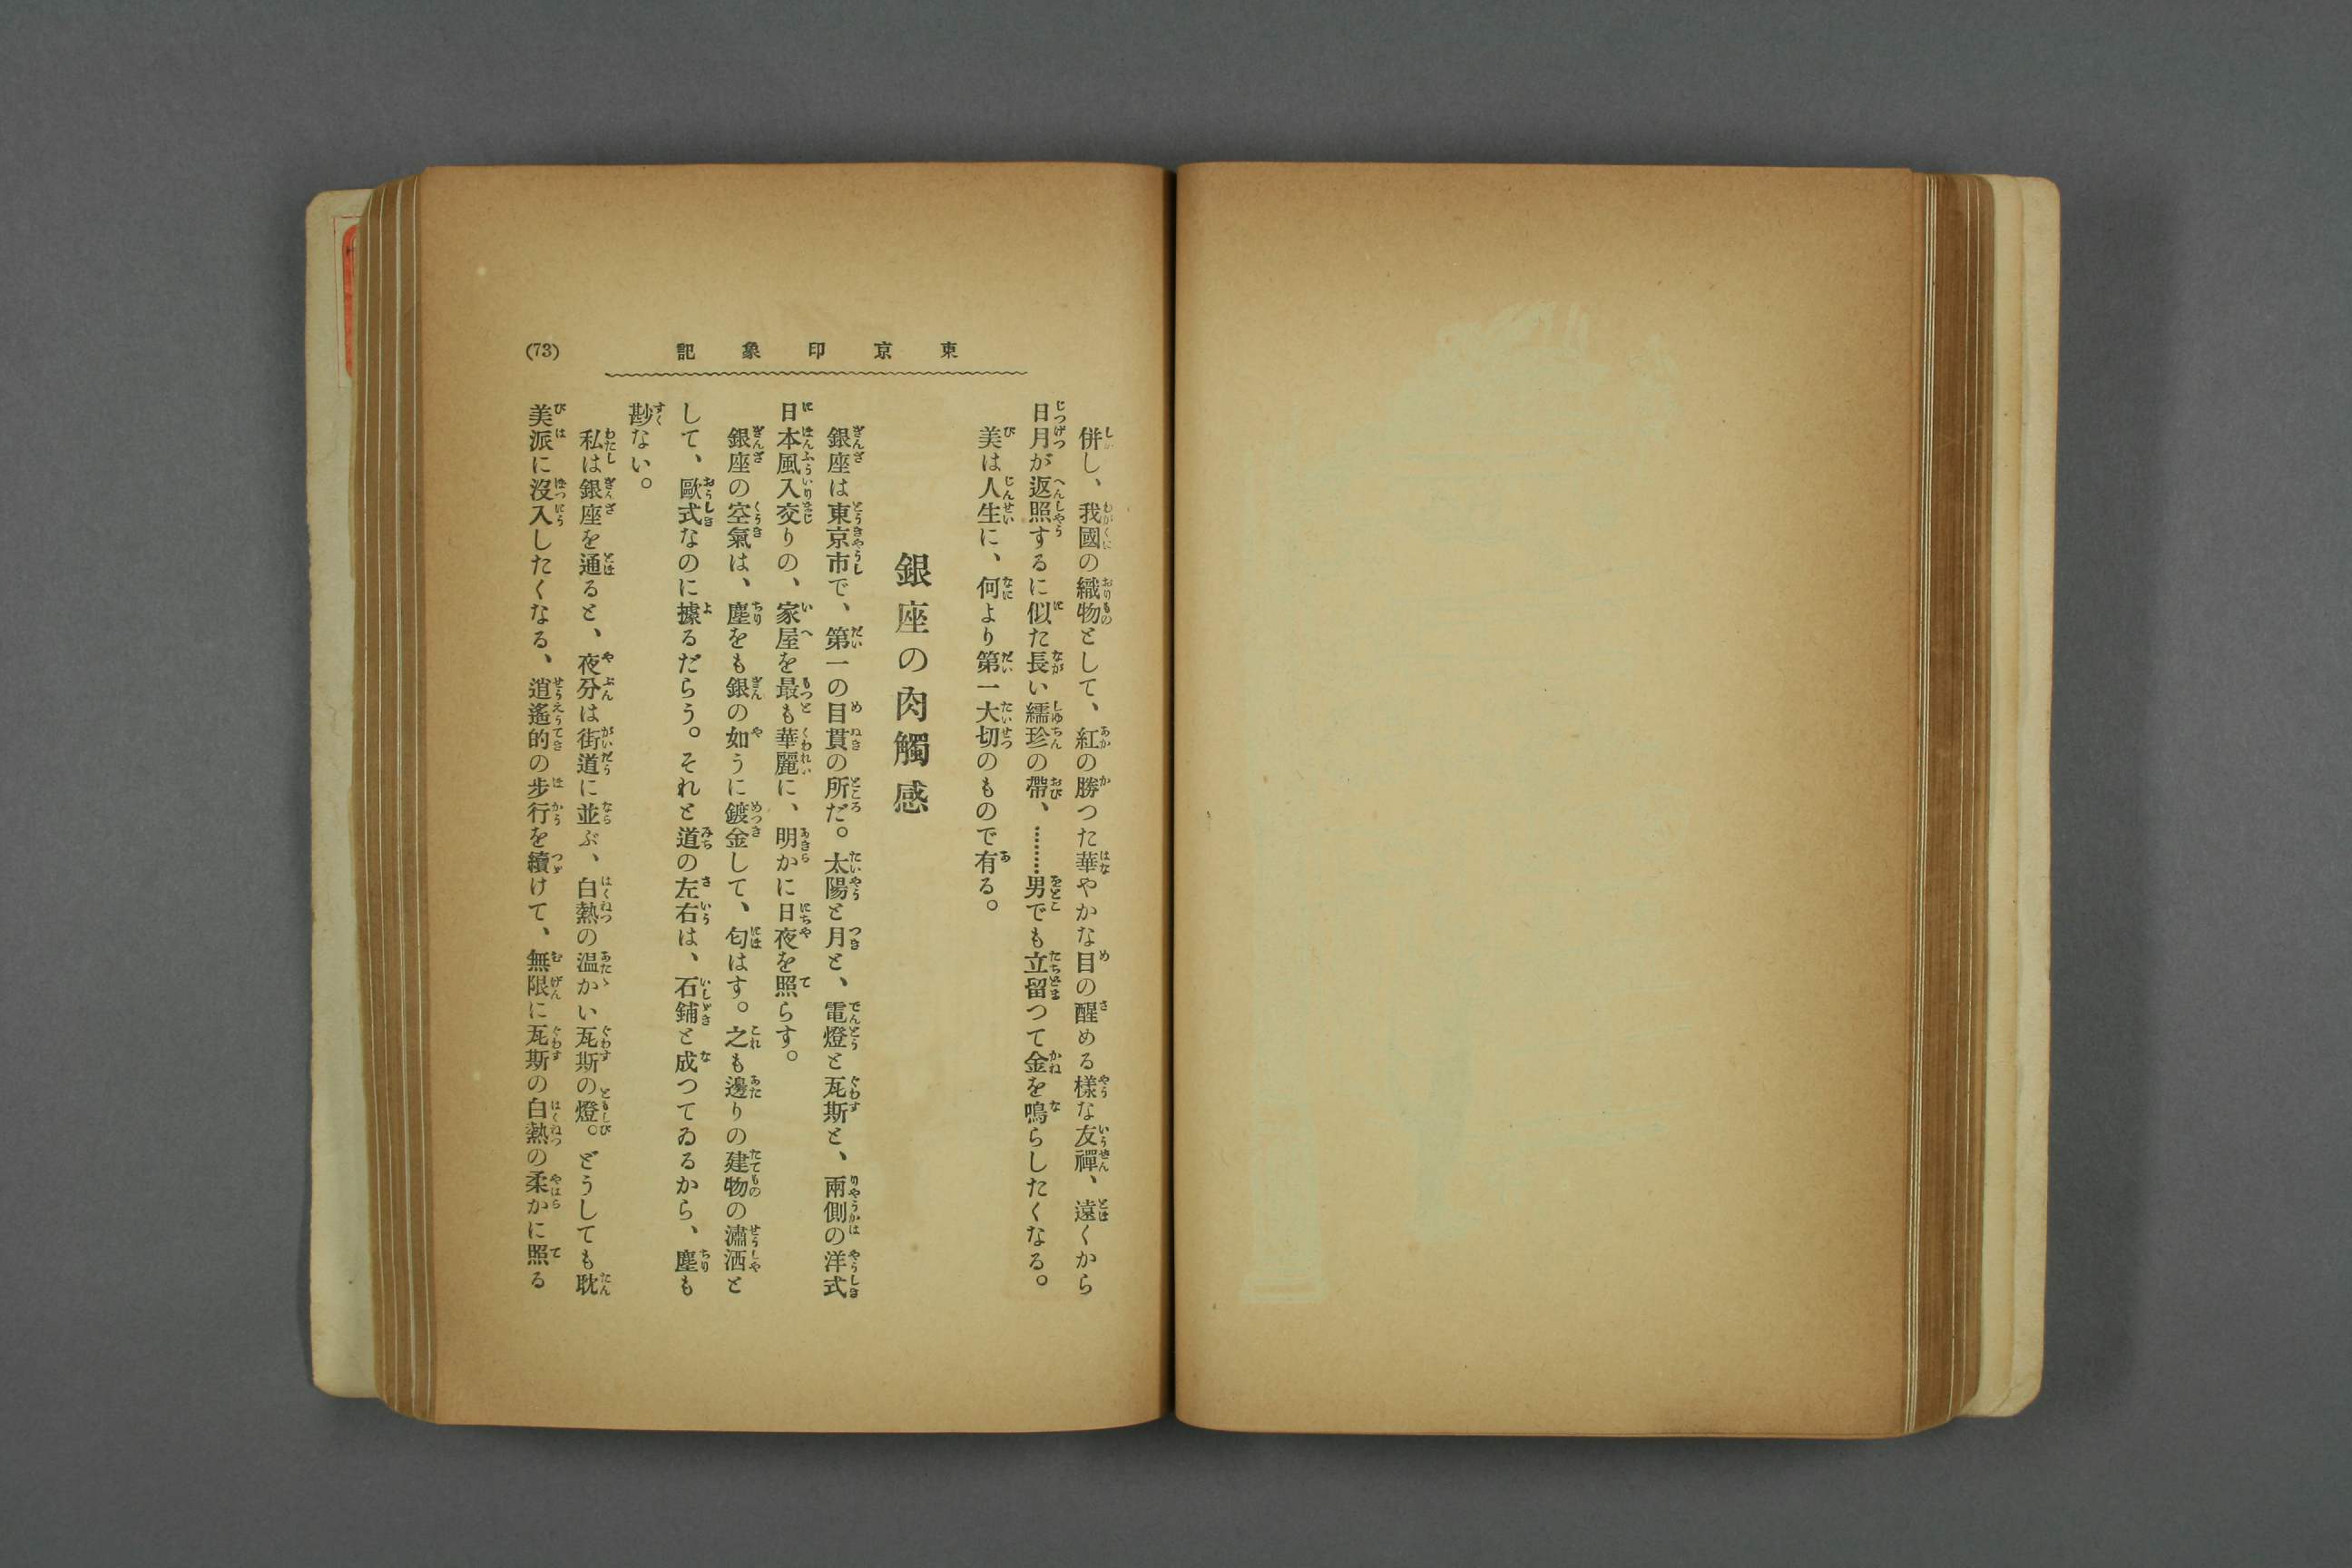 東京印象記
(73)
併し、我國の織物として、紅の勝つた華やかな目の醒める樣な友禪、遠くから
日月が返照するに似た長い繻珍の帶、………男でも立留つて金を鳴らしたくなる。
美は人生に、何より第一大切のもので有る。
銀座の肉觸感
銀座は東京市で、第一の目貫の所だ。太陽と月と、電燈と瓦斯と、兩側の洋式
日本風入交りの、家屋を最も華麗に、明かに日夜を照らす。
銀座の空氣は、塵をも銀の如うに鍍金して、匂はす。之も邊りの建物の瀟洒と
して、歐式なのに據るだらう。それと道の左右は、石鋪と成つてゐるから、塵も
尠ない。
私は銀座を通ると、夜分は街道に並ぶ、白熱の温かい瓦斯の燈。どうしても耽
美派に沒入したくなる、逍遙的の步行を續けて、無限に瓦斯の白熱の柔かに照る